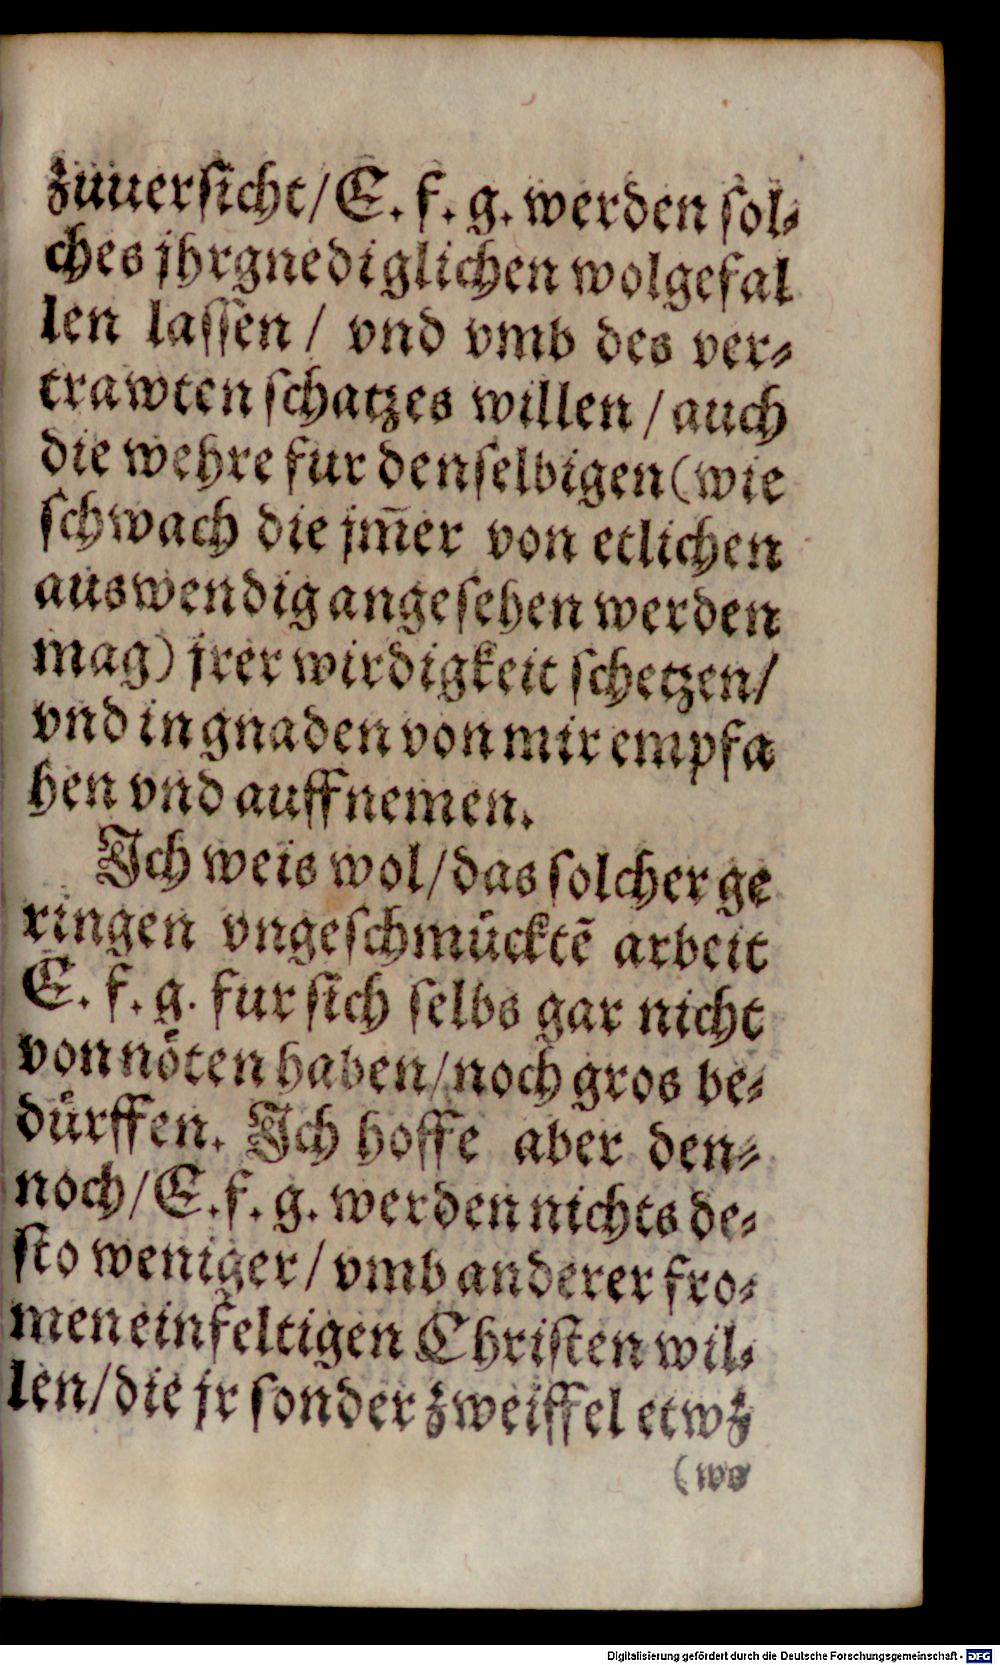 zuuersicht/ E. f. g. werden sol⸗
ches jhrgnediglichen wolgefal
len lassen/ vnd vmb des ver⸗
trawten schatzes willen/ auch
die wehre fur denselbigen (wie
schwach die jm̃er von etlichen
auswendig angesehen werden
mag) jrer wirdigkeit schetzen/
vnd in gnaden von mir empfa
hen vnd auffnemen.
Ich weis wol/ das solcher ge
ringen vngeschmücktẽ arbeit
E. f. g. fur sich selbs gar nicht
von nöten haben/ noch gros be⸗
dürffen. Ich hoffe aber den⸗
noch/ E. f. g. werden nichts de⸗
sto weniger/ vmb anderer fro⸗
men einfeltigen Christen wil⸗
len/ die jr sonder zweiffel etwz
(wo
Digitalisierung gefördert durch die Deutsche Forschungsgemeinschaft - DFG